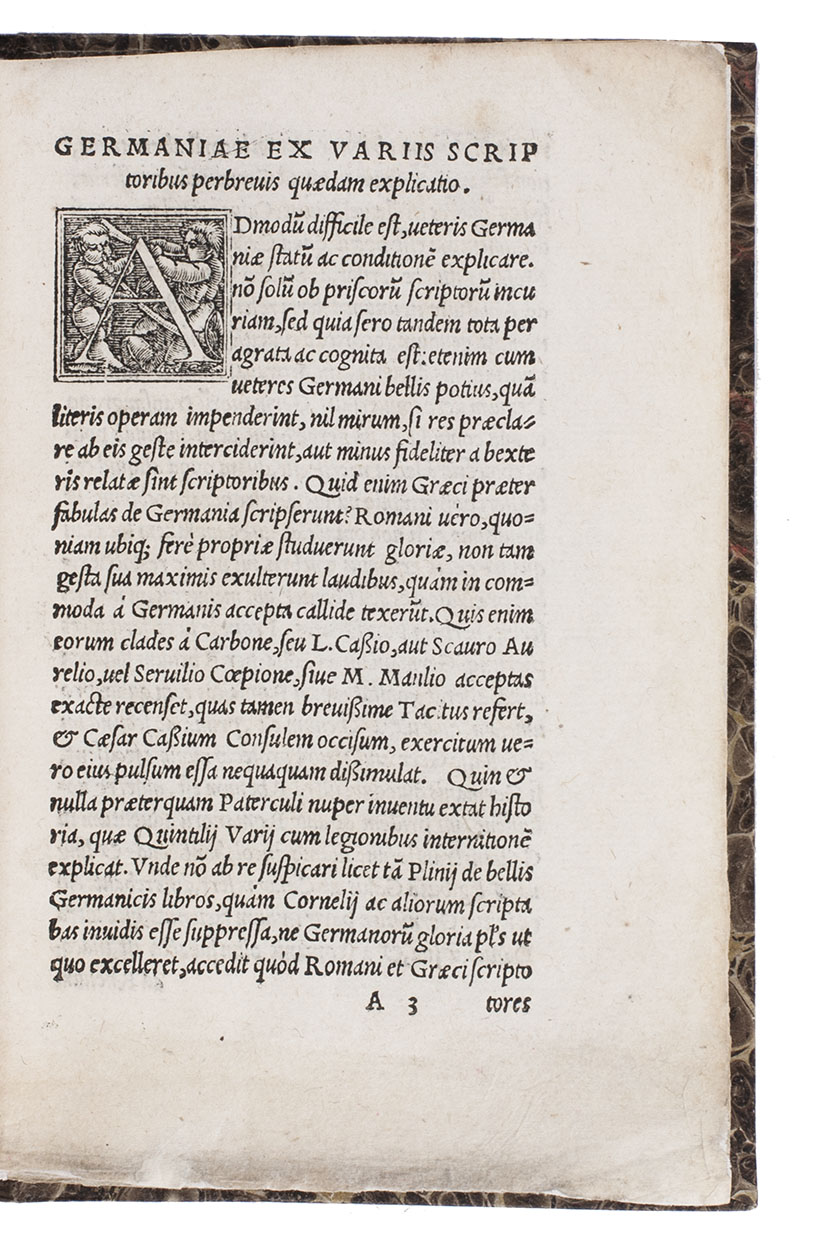 GERMANIAE EX VARIIS SCRIP
toribus perbreuis quædam explicatio.
ADmodū difficile eſt, ueteris Germa
niæ ſtatū ac conditionē explicare.
nō ſolū ob priſcorū ſcriptorū incu
riam, ſed quia ſero tandem tota per
agrata ac cognita eſt: etenim cum
ueteres Germani bellis potius, quā
literis operam impenderint, nil mirum, ſi res præcla-
re ab eis geſte interciderint, aut minus fideliter a b exte
ris relatæ ſint ſcriptoribus. Quid enim Græci præter
fabulas de Germania ſcripſerunt? Romani uèro, quo=
niam ubiq; ferè propriæ ſtuduerunt gloriæ, non tam
geſta ſua maximis exulterunt laudibus, quàm in com=
moda á Germanis accepta callide texerūt. Quis enim
eorum clades á Carbone, ſeu L. Caßio, aut Scauro Au
relio, uel Seruilio Cœpione, ſiue M. Manlio acceptas
exacte recenſet, quas tamen breuißime Tacitus refert,
& Cæſar Caßium Conſulem occiſum, exercitum ue=
ro eius pulſum eſſa nequaquam dißimulat. Quin &
nulla præterquam Paterculi nuper inuentu extat hiſto
ria, quæ Quintilij Varij cum legionibus internitionē
explicat. Vnde nō ab re ſuſpicari licet tā Plinij de bellis
Germanicis libros, quám Cornelij ac aliorum ſcripta
bas inuidis eſſe ſuppreſſa, ne Germanorū gloria pl's ut
quo excelleret, accedit quód Romani et Græci ſcripto
A 3 tores